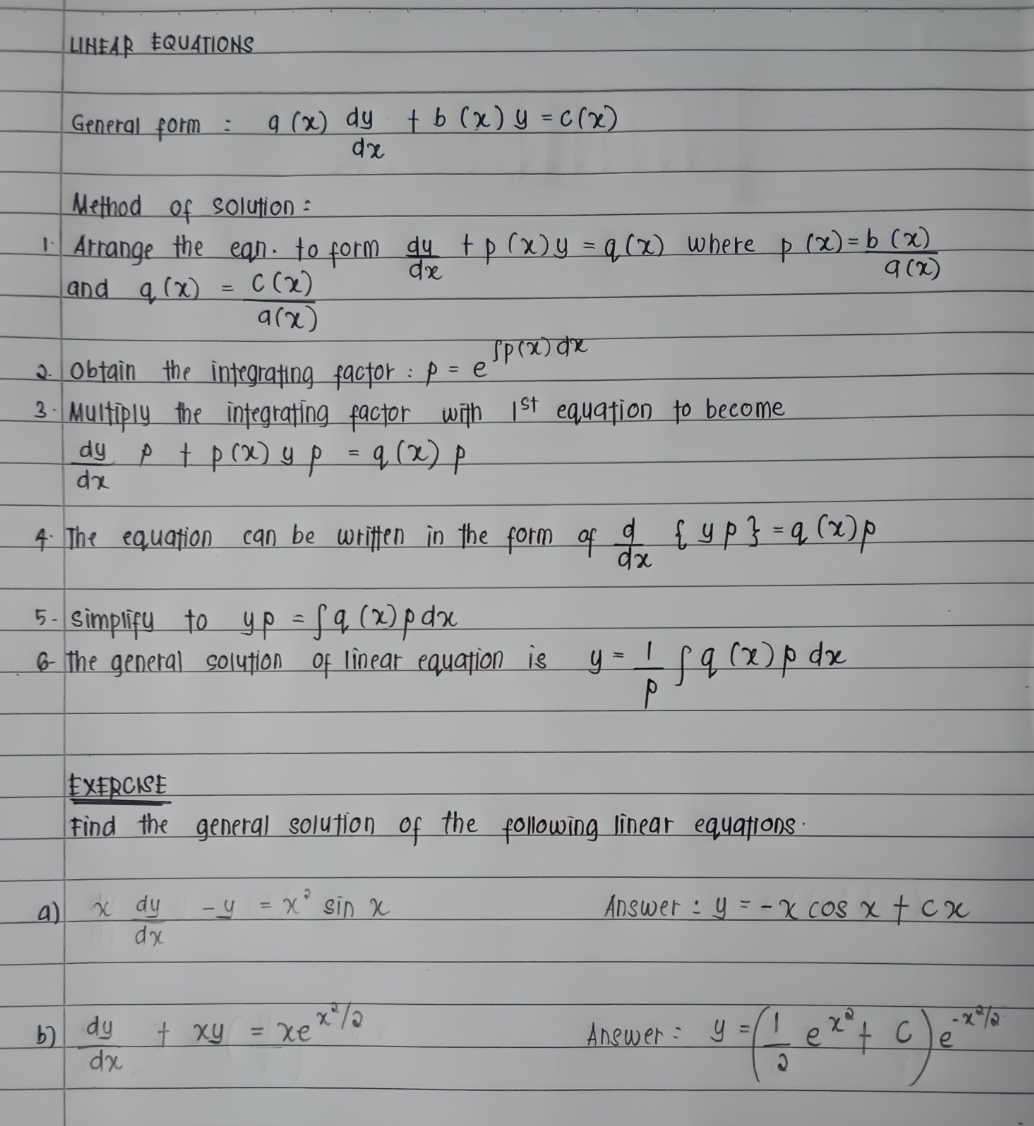 LINEAR EQUATIONS
General form : a(x) dy/dx + b(x)y = c(x)
Method of solution :
1. Arrange the eqn. to form dy/dx + p(x)y = q(x) where p(x) = b(x)/a(x)
and q(x) = c(x)/a(x)
2. Obtain the integrating factor : ρ = e^∫p(x)dx
3. Multiply the integrating factor with 1st equation to become
dy/dx ρ + p(x) y ρ = q(x) ρ
4. The equation can be written in the form of d/dx {yρ} = q(x)ρ
5. simplify to yρ = ∫q(x)ρdx
6. The general solution of linear equation is y = 1/ρ ∫q(x)ρ dx
EXERCISE
Find the general solution of the following linear equations.
a) x dy/dx - y = x² sin x Answer : y = -x cos x + cx
b) dy/dx + xy = xe^x²/2 Answer : y = (1/2 e^x² + C)e^-x²/2